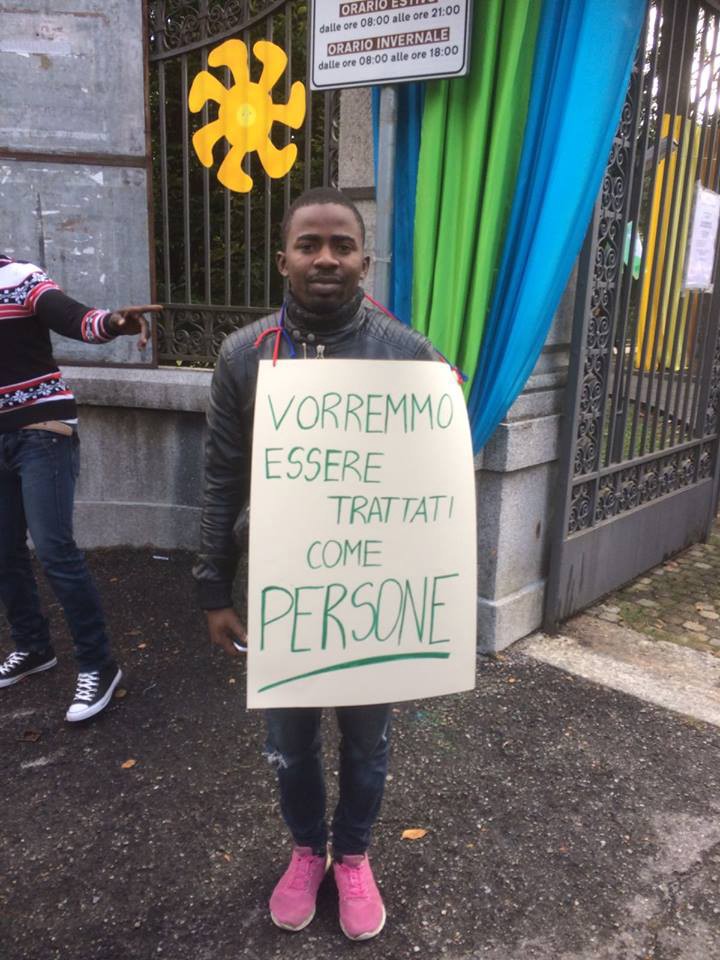 ORARIO ESTIVO
dalle ore 08:00 alle ore 21:00
ORARIO INVERNALE
dalle ore 08:00 alle ore 18:00
VORREMMO
ESSERE
TRATTATI
COME
PERSONE